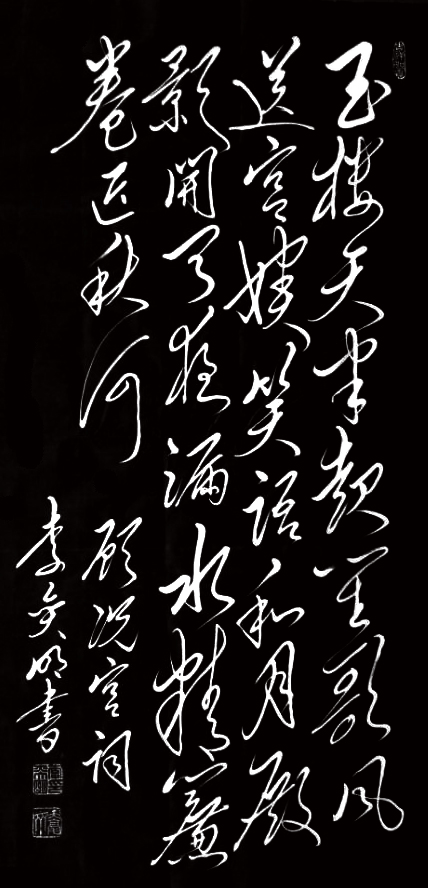 玉楼天半起笙歌风
送宫嫔笑语和月殿
影開闻夜漏水精簾
卷近秋河
顾况宫词
李奕明書